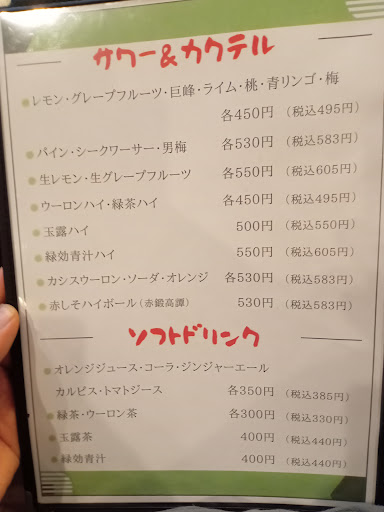 サワー&カクテル
レモン・グレープフルーツ・巨峰・ライム・桃・青リンゴ・梅
各450円 (税込495円)
パイン・シークワーサー・男梅 各530円 (税込583円)
生レモン・生グレープフルーツ 各550円 (税込605円)
ウーロンハイ・緑茶ハイ 各450円 (税込495円)
玉露ハイ 500円 (税込550円)
緑効青汁ハイ 550円 (税込605円)
カシスウーロン・ソーダ・オレンジ 各530円 (税込583円)
赤しそハイボール(赤鍛高譚) 530円 (税込583円)
ソフトドリンク
オレンジジュース・コーラ・ジンジャーエール
カルピス・トマトジース 各350円 (税込385円)
緑茶・ウーロン茶 各300円 (税込330円)
玉露茶 400円 (税込440円)
緑効青汁 400円 (税込440円)